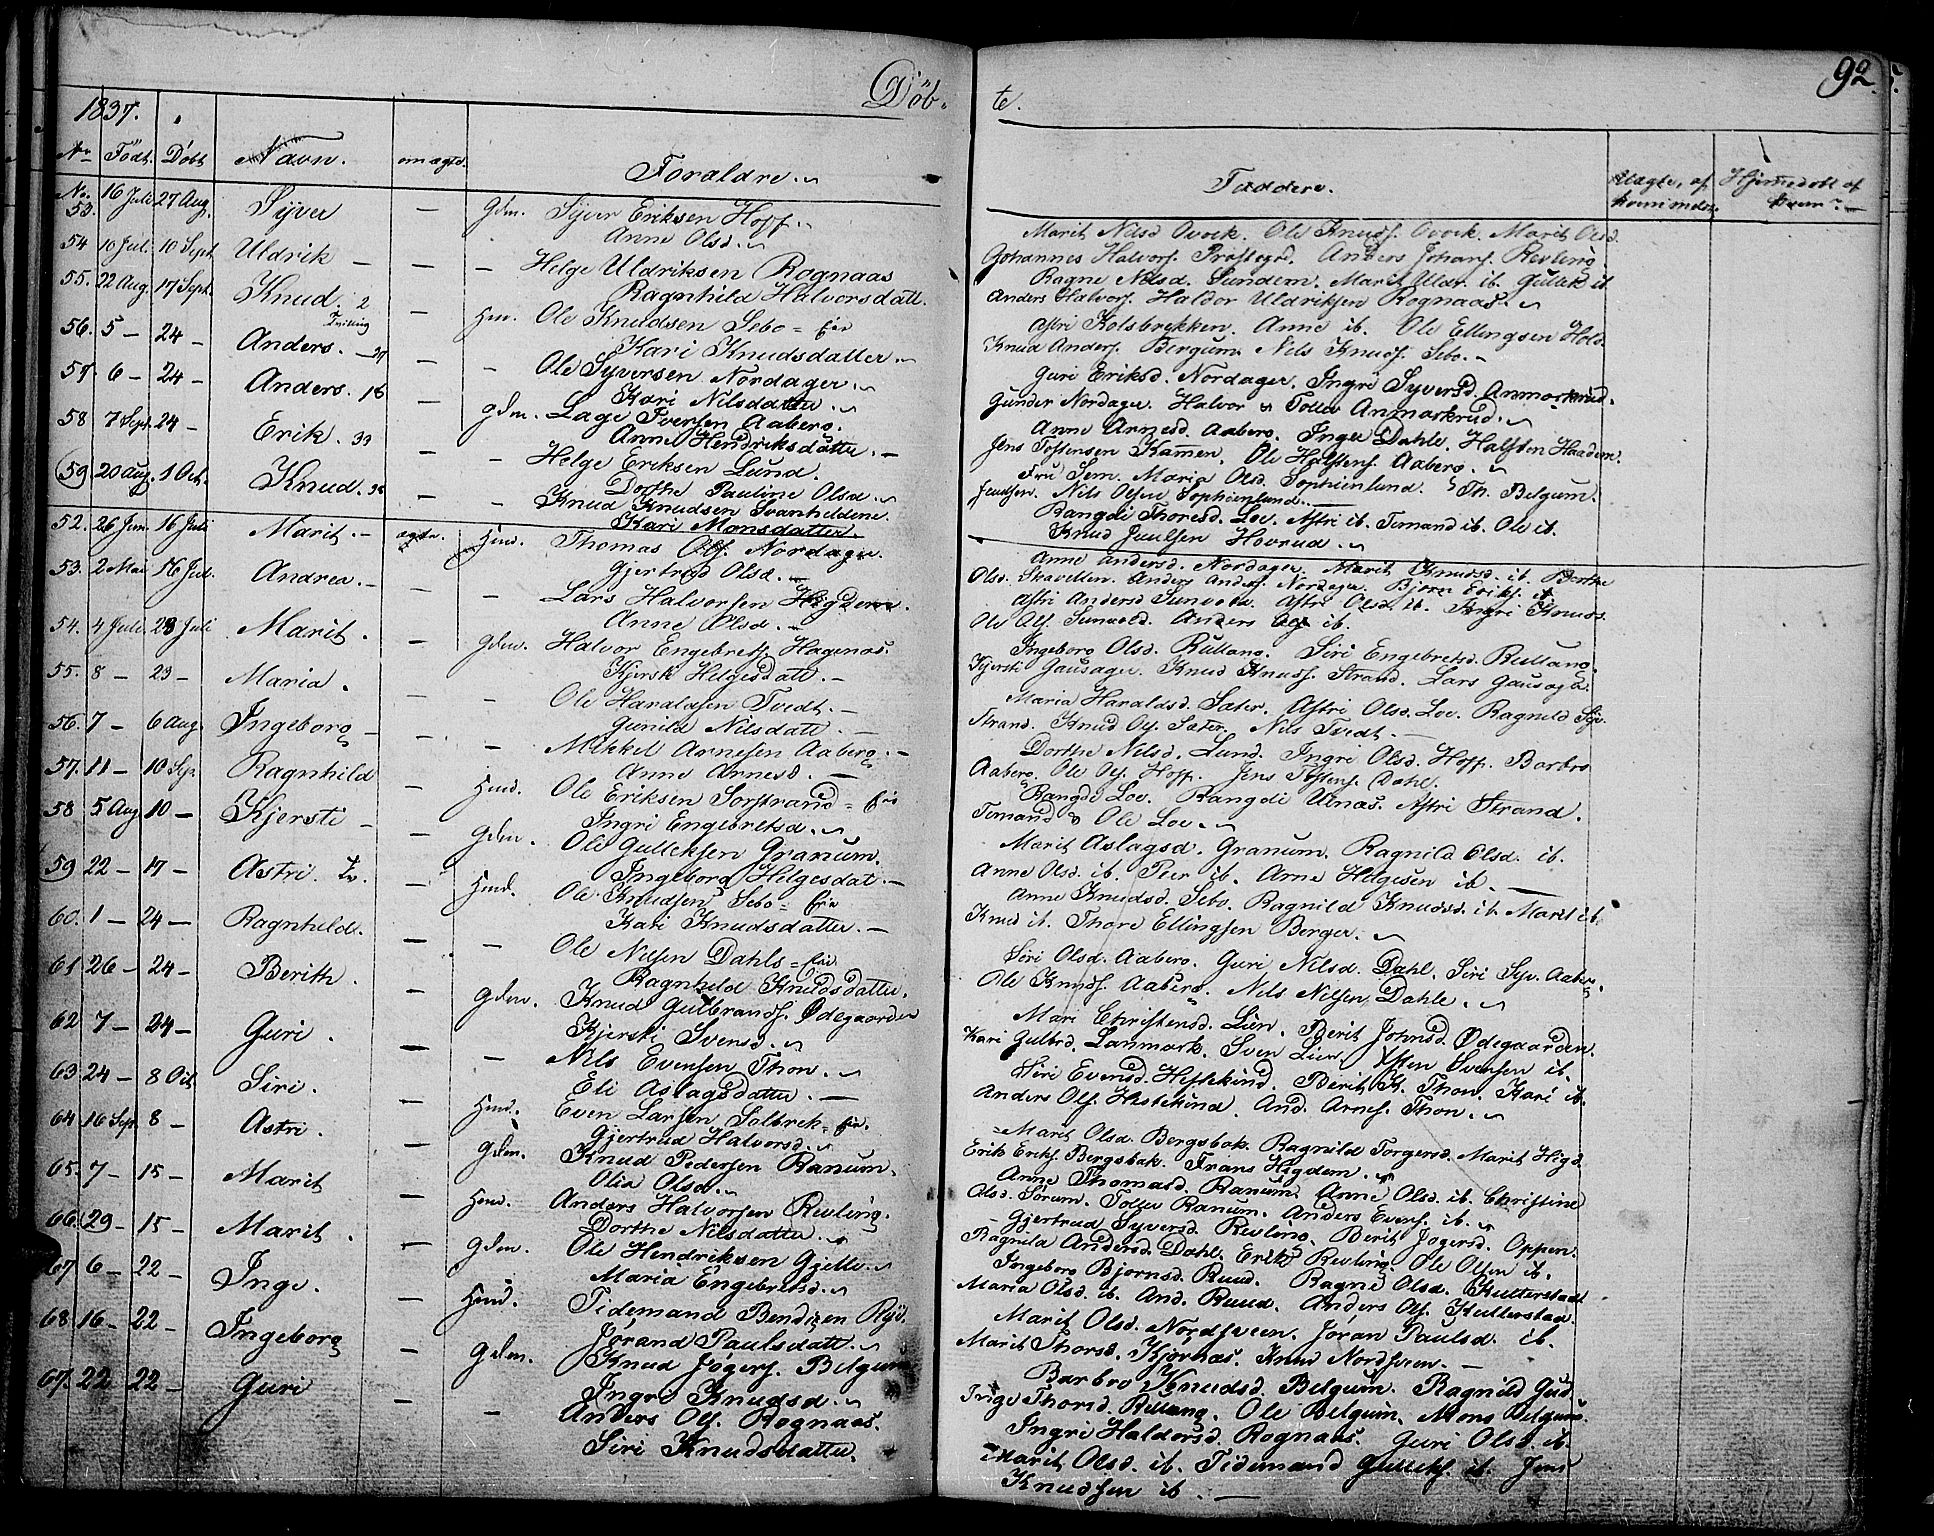 Döb-
te.
92
1837.
No Födt. Döbt Navn. om ægte. Forældre.
Faddere. Uægte, af Hjemmedöbt af hvem?
No 53. 16 Juli 27 Aug. Syver — Gdm. Syver Eriksen Hoff.
Anne Olsd.
54 10 Jul. 10 Sept. Uldrik — — Helge Uldriksen Rognaas
Ragnhild Halvorsdatt.
55. 22 Aug. 17 Sept. Knud. 2 Tvilling — Hm. Ole Knudsen Sebo
Kari Knudsdatter.
56. 5 — 24 — Anders. — Ole Syversen Nordager.
Kari Nilsdatter.
57. 6 — 24 — Anders. — Gdm. Lage Iversen Aaberg.
Anne Hendriksdatter.
58 7 Sept. 24 — Erik. — Helge Eriksen Lund.
Dorthe Pauline Olsd.
59 20 Aug. 1 Oct. Knud. — Knud Knudsen Svanheldene.
Kari Monsdatter.
52. 26 Jun. 16 Juli Marit. — ægte. Hmd. Thomas Ols. Nordager.
Gjertrud Olsd.
53. 2 Mai 16 Jul. Andrea. — — Lars Halvorsen Higdem.
Anne Olsd.
54. 4 Juli. 23 Juli Marit. — Gdm. Halvor Engebrets. Hagenæs.
Kjersti Helgesdatt.
55. 8 — 23 — Maria. — Ole Haraldsen Tvedt.
Gunild Nilsdatt.
56. 7 — 6 Aug. Ingeborg — Mikkel Arnesen Aaberg.
Anne Arnesd.
57. 11 — 10 Sep. Ragnhild — Hmd. Ole Eriksen Sorstrand
Ingri Engebretsd.
58 5 Aug 10 — Kjersti — Gdm. Ole Gulleksen Granum.
Ingeborg Helgesdat.
59 22 — 17 — Astri. Tv. — Hmd. Ole Knudsen Sebo
Kari Knudsdatter.
60. 1 — 24 — Ragnhild. — Ole Nilsen Dahls
Ragnhild Knudsdatter.
61 26 — 24 — Berith. — Gdm. Knud Gulbrands. Ødegaarden
Kjersti Svensd.
62 7 — 24 — Guri. — Nils Evensen Thon.
Eli Aslagsdatter.
63. 24 — 8 Oct. Siri. — Hmd. Even Larsen Solbrek
Gjertrud Halvorsd.
64 16 Sep. 8 — Astri. — Gdm. Knud Pedersen Ranum.
Olia Olsd.
65. 7 — 15 — Marit — Hmd. Anders Halvorsen Revling.
Dorthe Nilsdatter.
66. 29 — 15 — Marit. — Gdm. Ole Hendriksen Gjelle.
Maria Engebretsd.
67 6 — 22 — Inge. — Hmd. Tidemand Bendixen
Jørand Paulsdatt.
68. 16 — 22 — Ingeborg — Gdm. Knud Jögers. Belgum
Ingri Knudsd.
67. 22 22 — Guri — Anders Ols. Rognaas.
Siri Knudsdatter.
Marit Nilsd Ovrek. Ole Knuds. Ovrek. Marit Olsd.
Johannes Halvors. Anders Johans. Revling.
Ragne Nilsd. Sundem. Marit Uldr. ib. Gullek ib
Anders Halvors. Haldor Uldriksen Rognaas.
Astri Kolsbrekken. Anne ib. Ole Ellingsen
Knud Anders. Bergum. Nils Knuds. Sebo.
Guri Eriksd. Nordager. Ingri Syversd. Anmarkrud.
Gunder Nordager. Halvor & Tollev Anmarkrud.
Anne Arnesd. Aaberg. Inger Dahle. Halsten Haadem.
Jens Tostensen Kamen. Ole Halstens. Aaberg.
Fru Sem. Maria Olsd. Sophienlund. Th. Belgum.
Nils Olsen Sophienlund.
Rangdi Thoresd. Loe. Astri ib. Temand ib. Ole ib.
Knud Juulsen Hovrud.
Anne Andersd. Nordager. Marit Knudsd. ib. Berthe
Olsd. Skavellen. Anders Anders. Nordager. Bjorn Eriks. ib
Astri Andersd. Sunvold. Astri Olsd. ib. Ingri Knuds.
Ole Ols. Sunvold. Anders Ols ib.
Ingeborg Olsd. Rullang. Siri Engebretsd. Rullang.
Kjersti Gausager. Knud Knuds. Strand. Lars Gausager.
Maria Haraldsd. Sæter. Astri Olsd. Loe. Ragnild Syv.
Strand. Knud Ols. Sæter. Nils Tvedt.
Dorthe Nilsd. Lund. Ingri Olsd. Hoff. Barbro
Aaberg. Ole Ols. Hoff. Jens Tostens. Dahl.
Rangdi Loe. Rangdi Ulnæs. Astri Strand.
Temand & Ole Loe.
Marit Aslagsd. Granum. Ragnild Olsd. ib.
Anne Olsd. ib. Peer ib. Arne Helgesen ib.
Anne Knudsd. Sebo. Ragnild Knudsd. ib. Marit ib.
Knud ib. Thore Ellingsen Berger.
Siri Olsd. Aaberg. Guri Nilsd. Dahl. Siri Syv. Aaberg.
Ole Knuds. Aaberg. Nils Nilsen Dahle.
Mari Christensd. Lien. Berit Johnsd. Ødegaarden.
Kari Gulbrd. Lanmark. Sven Lien. Østen Svensen ib.
Siri Evensd. Heslekind. Berit K. Thon. Kari ib.
Anders Ols. Heslekind. And. Arnes. Thon.
Marit Olsd. Bergsbak. Ragnild Torgersd. Marit Higd.
Erik Eriks. Bergsbak. Frans Higdem.
Anne Thomasd. Ranum. Anne Olsd. ib. Christine
Olsd. Sørum. Tollev Ranum. Anders Evens. ib.
Gjertrud Syversd. Revling. Berit Jogersd. Oppen.
Ragnild Andersd. Dahl. Erik Revling. Ole Olsen ib.
Ingeborg Bjornsd. Ruud. Ragne Olsd. Kulterstad
Maria Olsd. ib. And. Ruud. Anders Ols. Kulterstad.
Marit Olsd. Nordsveen. Jøran Paulsd. ib.
Marit Thorsd. Kjørnæs. Knud Nordsveen.
Barbro Knudsd. Belgum. Ragnild Gud
Inge Thorsd. Rullang. Ole Belgum. Mons Belgum.
Ingri Haldorsd. Rognaas. Guri Olsd. ib.
Marit Olsd. ib. Tidemand Gulleks. ib. Jens
Knudsen ib.